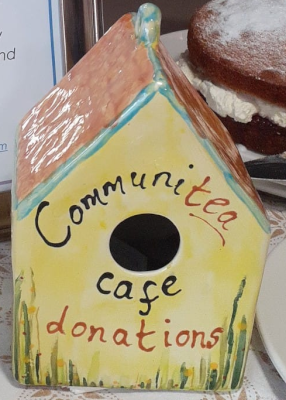 Communitea
cafe
donations